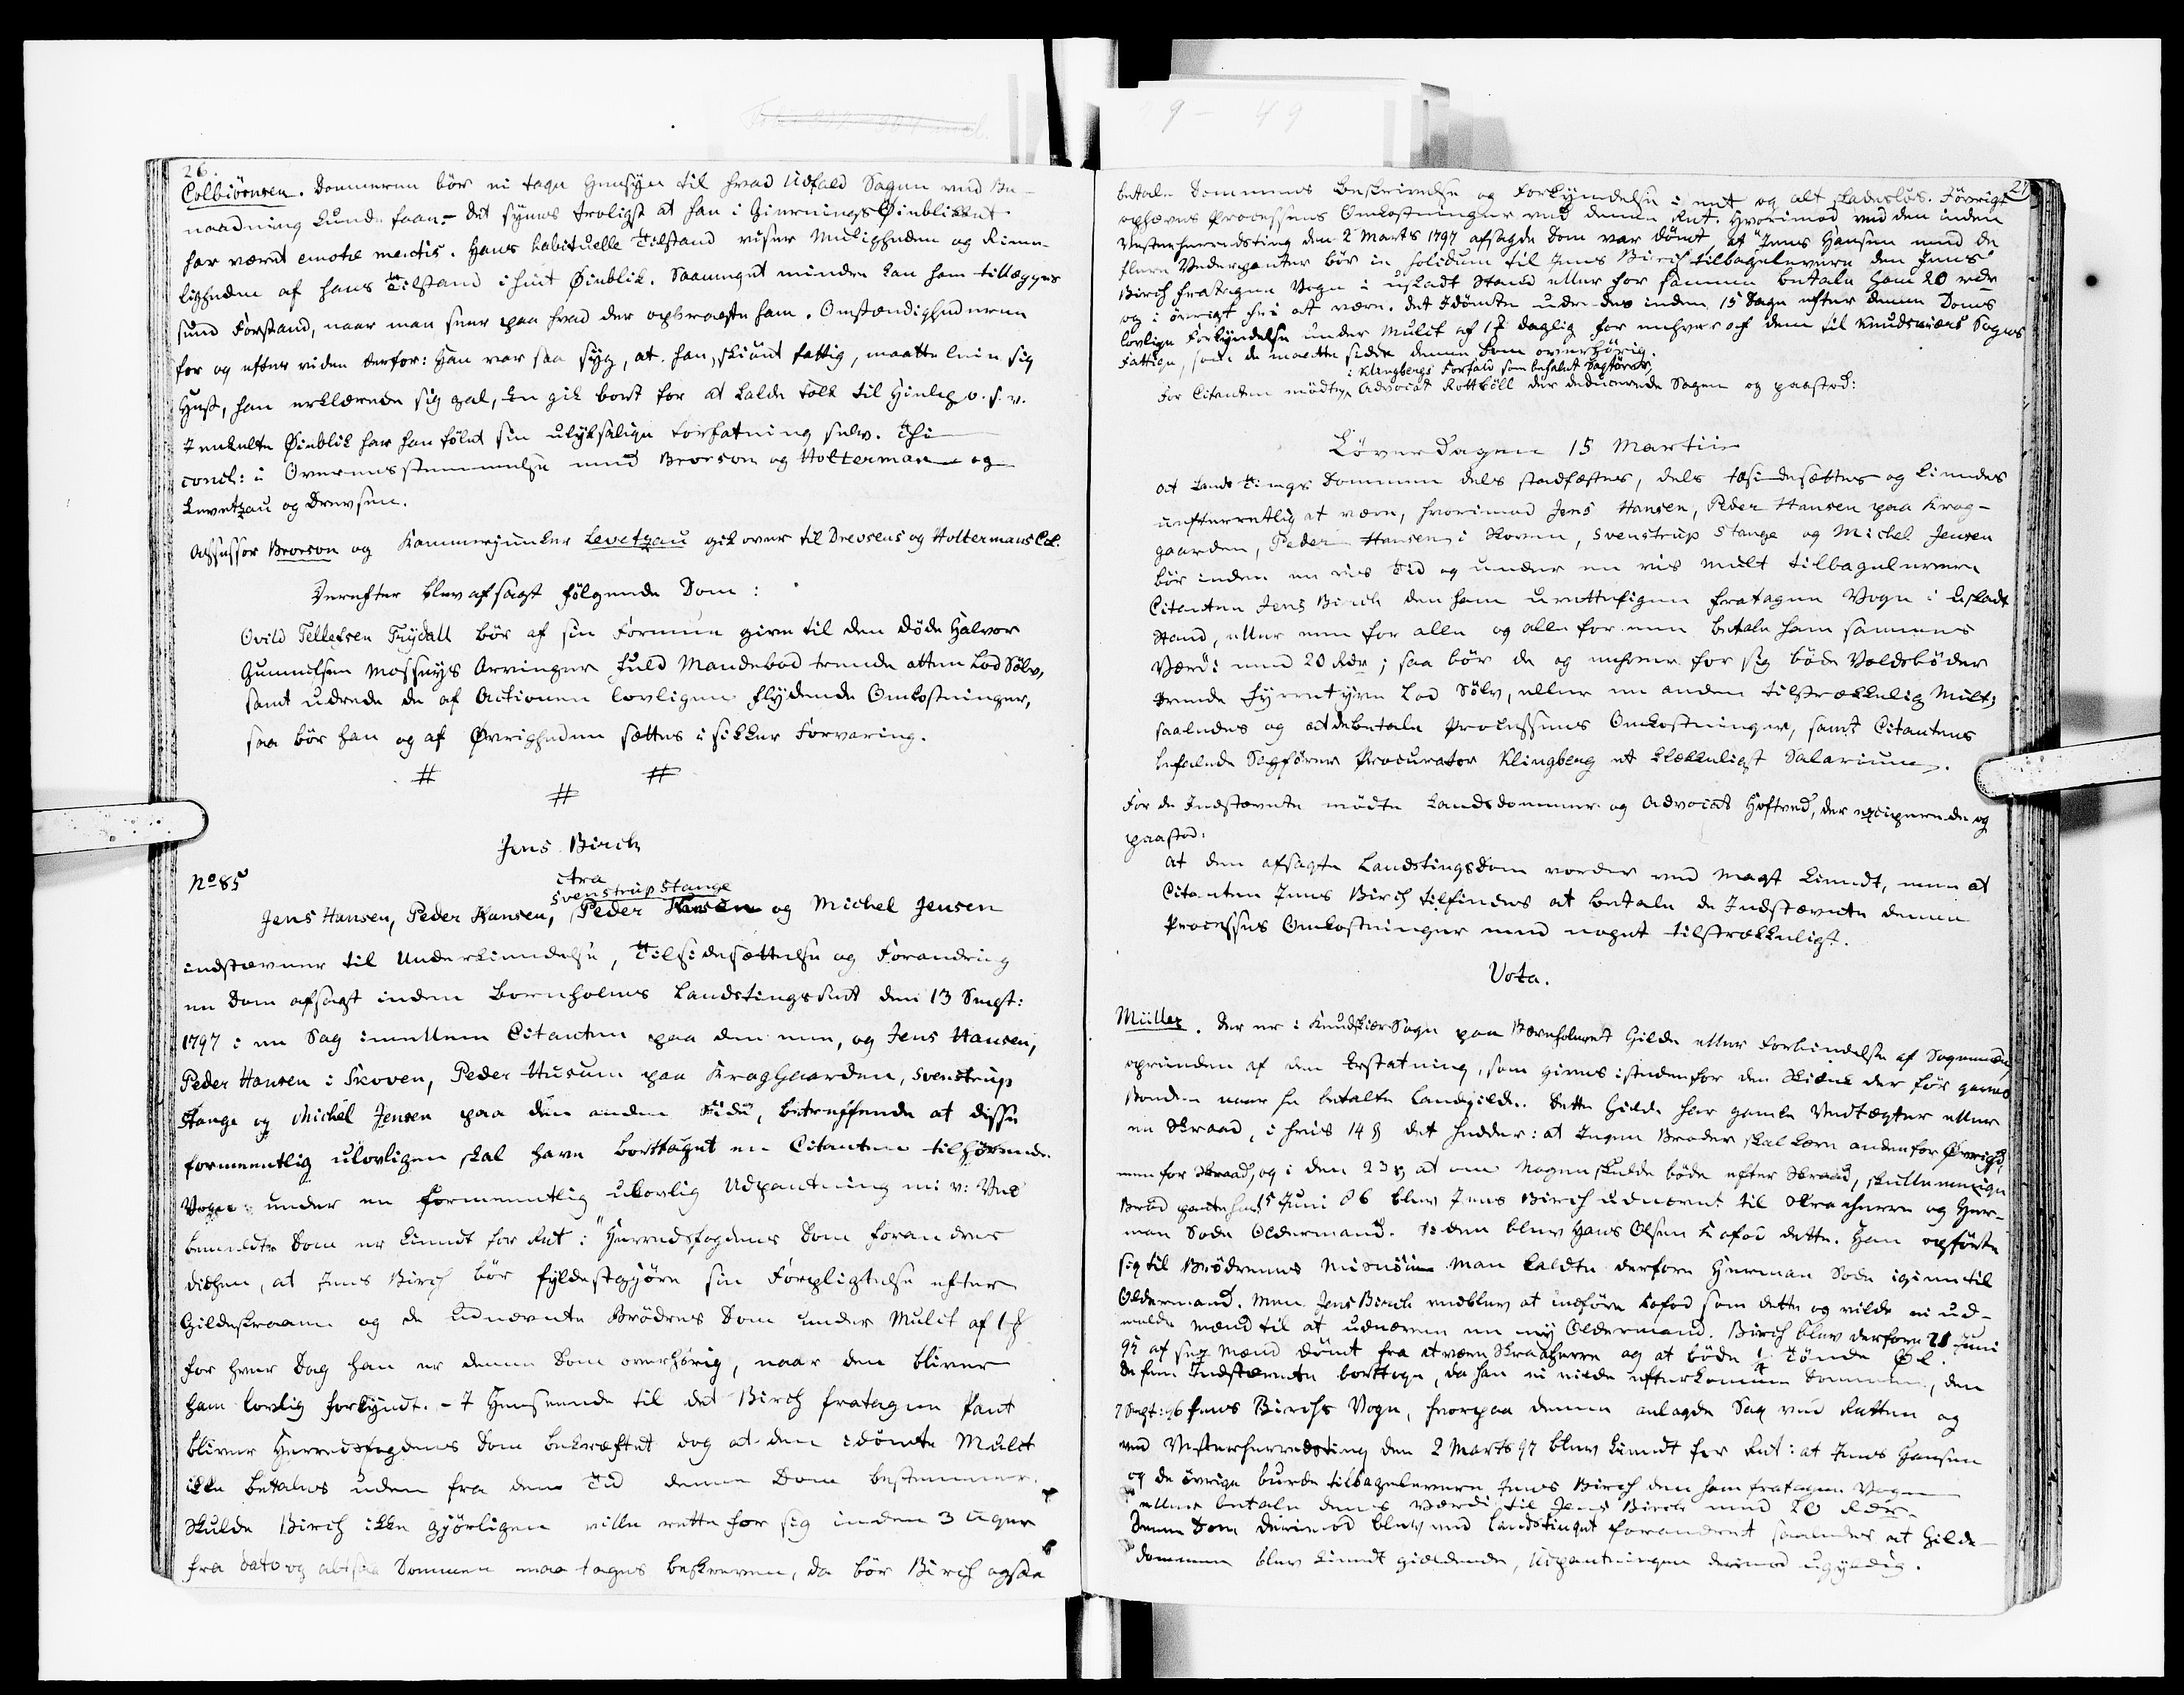 26.
Colbiörnsen. Dommeren bör ei tage Hensyn til hvad Udfald Sagen ved Be-
naadning kunde faae. - Det synes troligst at han i GierningsØieblikket
har været emotæ mentis. Hans habituelle Tilstand viser Muligheden og Rime-
ligheden af hans Tilstand i hiint Øieblik. Saameget mindre kan ham tillægges
sund Forstand, naar man seer paa hvad der opbragte ham. Omstændighederne
for og efter viden derfor: Han var saa syg, at han, skiönt fattig, maatte leie sig
Hest, han erklærede sig gal, gik bort for at kalde Folk til Hielp o. s. v.
I enkelte Øieblik har han fölet sin ulyksalige Forfatning selv. Thi
concl: i Overeensstemmelse med Brorson og Holterman og
Levetzau og Drewsen.
Assessor Brorson og Kammerjunker Levetzau gik over til Drewsens og Holtermans Col.
Derefter blev afsagt fölgende Dom:
Ovild Tellefsen Trydall bör af sin Formue give til den döde Halvor
Gunnelsen Mossings Arvinger fuld Mandebod trende atten Lod Sölv,
samt udrede de af Actionen lovligen flydende Omkostninger,
saa bör han og af Øvrigheden sættes i sikker Forvaring.
# #
#
Jens Birch
No 85 ctra
Svenstrup Stange
Jens Hansen, Peder Hansen, Peder Hansen og Michel Jensen
indstævner til Underkiendelse, Tilsidesættelse og Forandring
en Dom afsagt inden Bornholms Landstingsret den 13 Sept:
1797 i en Sag imellem Citanten paa den ene, og Jens Hansen,
Peder Hansen i Skoven, Peder Husum paa KragGaarden, Svenstrup
Stange og Michel Jensen paa den anden Side, betreffende at disse
formeentlig ulovligen skal have borttaget en Citanten tilhörende
Vogn under en formeentlig ulovlig Udpantning m: v: Ved
bemeldte Dom er kiendt for Ret: "Herredsfogdens Dom forandres
dithen, at Jens Birch bör fyldestgjöre sin Forpligtelse efter
Gildeskraaen og de udnævnte Brödres Dom under Mulct af 1
for hver Dag han er denne Dom overhörig, naar den bliver
ham lovlig forkyndt. - I Henseende til det Birch fratagne Pant
bliver Herredsfogdens Dom bekræftet dog at den idömte Mulct
ikke betales uden fra den Tid denne Dom bestemmer.
Skulde Birch ikke gjörligen ville rette for sig inden 3 Uger
fra dato og altsaa Dommen maa tages beskreven, da bör Birch ogsaa
27
betale Dommens Beskrivelse og Forkyndelse i eet og alt skadeslös. Iövrigt
ophæves Processens Omkostninger ved denne Ret. Hvorimod ved den inden
Vesterherredsting den 2 Marts 1797 afsagde Dom var dömt, at "Jens Hansen med de
flere Vedergjenter bör in solidum til Jens Birch tilbagelevere den Jens
Birch fratagne Vogn i uskadt Stand eller for samme betale ham 20 rdr
og i övrigt fri at være. Det Idömte udredes inden 15 Dage efter denne Doms
lovlige Forkyndelse under Mulct af 1 daglig for enhver af dem til Knudskiærs Sogns
Fattige, som de maatte sidde denne Dom overhörig.
i Klingbergs Forfald som befalet Sagförer,
For Citanten mödte Advocat Rottböll der deducerede Sagen og paastod:
Löverdagen 15 Martii
at LandsTings Dommen dels stadfæstes, dels tilsidesættes og kiendes
uefterretlig at være, hvorimod Jens Hansen, Peder Hansen paa Krag-
gaarden, Peder Hansen i Skoven, Svenstrup Stange og Michel Jensen
bör inden en vis Tid og under en vis Mulct tilbagelevere
Citanten Jens Birch den ham uretteligen fratagne Vogn i uskadt
Stand, eller een for alle og alle for een betale ham sammes
Værdi med 20 Rdr; saa bör de og enhver for sig böde Voldsböder
trende fyrretyve Lod Sölv, eller en anden tilstrækkelig Mulct;
saaledes og at de betale Processens Omkostninger, samt Citantens
befalede Sagförer Procurator Klingberg et klækkeligt Salarium.
For de Indstævnte mödte Landsdommer og Advocat Höstved, der exciperede og
paastod:
at den afsagte Landstingsdom vorder ved Magt kiendt, men at
Citanten Jens Birch tilfindes at betale de Indstævnte denne
Processes Omkostninger med noget tilstrækkeligt.
Vota.
Müller. Der er i Knudskiær Sogn paa Bornholm et Gilde eller Forbindelse af Sognemænd,
oprunden af den Erstatning, som gives istedenfor den der för gaves
Bonden naar han betalte Landgilde. Dette Gilde har gamle Vedtægter eller
en Skraad, i hvis 14 § det hedder: at Ingen Broder skal kære anden for Øvrighed,
men for Skraad, og i den 23 § at om Nogen skulde böde efter Skraad, skulle menige
Bröd pante ham. 15 Juni 86 blev Jens Birch udnævnt til Skraaherre og Her-
man Sode Oldermand. Siden blev Hans Olsen Kofod dette. Han opförte
sig til Brödrenes Misnöie. Man kaldte derfore Herman Sode igien til
Oldermand. Men Jens Birch vedblev at indföre Kofod som dette og vilde ei ud-
melde Mænd til at udnævne en ny Oldermand. Birch blev derfore 21 Juni
95 af sex Mænd dömt fra at være Skraaherre og at böde ½ Tönde Øl.
De fem Indstævnte borttoge, da han ei vilde efterkomme Dommen, den
7 Sept: 96 Jens Birchs Vogn, hvorpaa denne anlagde Sag ved Retten og
ved Vesterherredsting den 2 Marts 97 blev kiendt for Ret: at Jens Hansen
og de övrige burde tilbagelevere Jens Birch den ham fratagne Vogn
eller betale dens Værdi til Jens Birch med 20 Rdr.
Denne Dom derimod blev ved Landstinget forandret saaledes at Gilde-
dommen blev kiendt gieldende, Udpantningen derimod ugyldig.